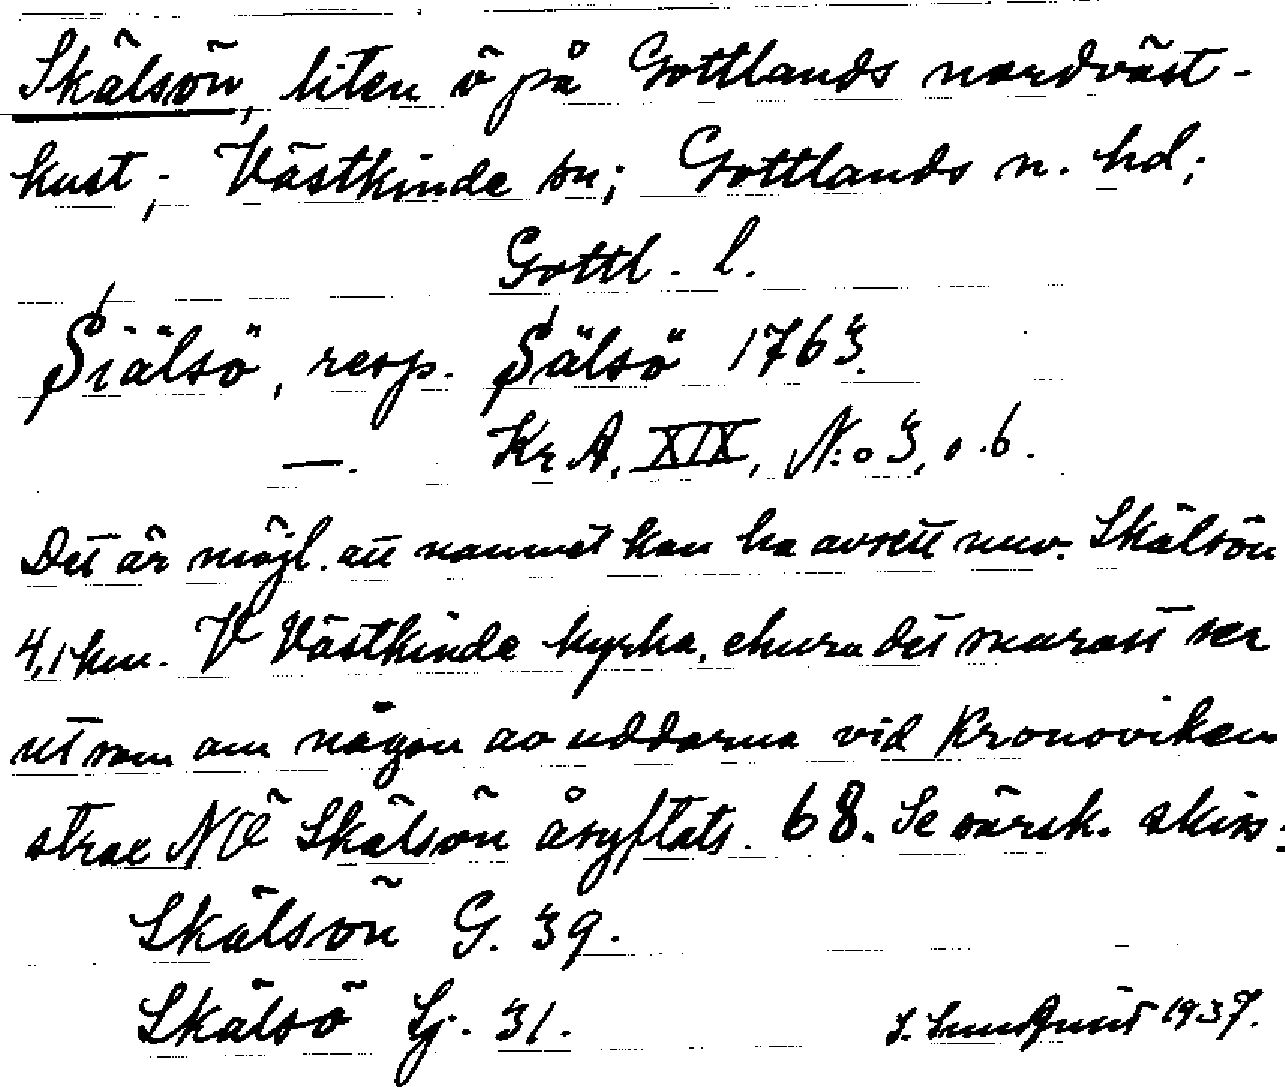 Skälsön, liten ö på Gottlands nordväst-
kust; Västkinde sn; Gottlands n. hd;
Gottl. l.
Siälsö, resp. Sälsö 1763.
—. Kr A, XIX, N:o 3, s. 6.
Det är möjl. att namnet kan ha avsett nuv. Skälsön
4,1 km. V Västkinde kyrka, ehuru det snarast ser
ut som om någon av uddarna vid Kronoviken
strax NÖ Skälsön åsyftats. 68. Se särsk. skiss.
Skälsön G. 39.
Skälsö Sj. 31.
S. Lundquist 1937.